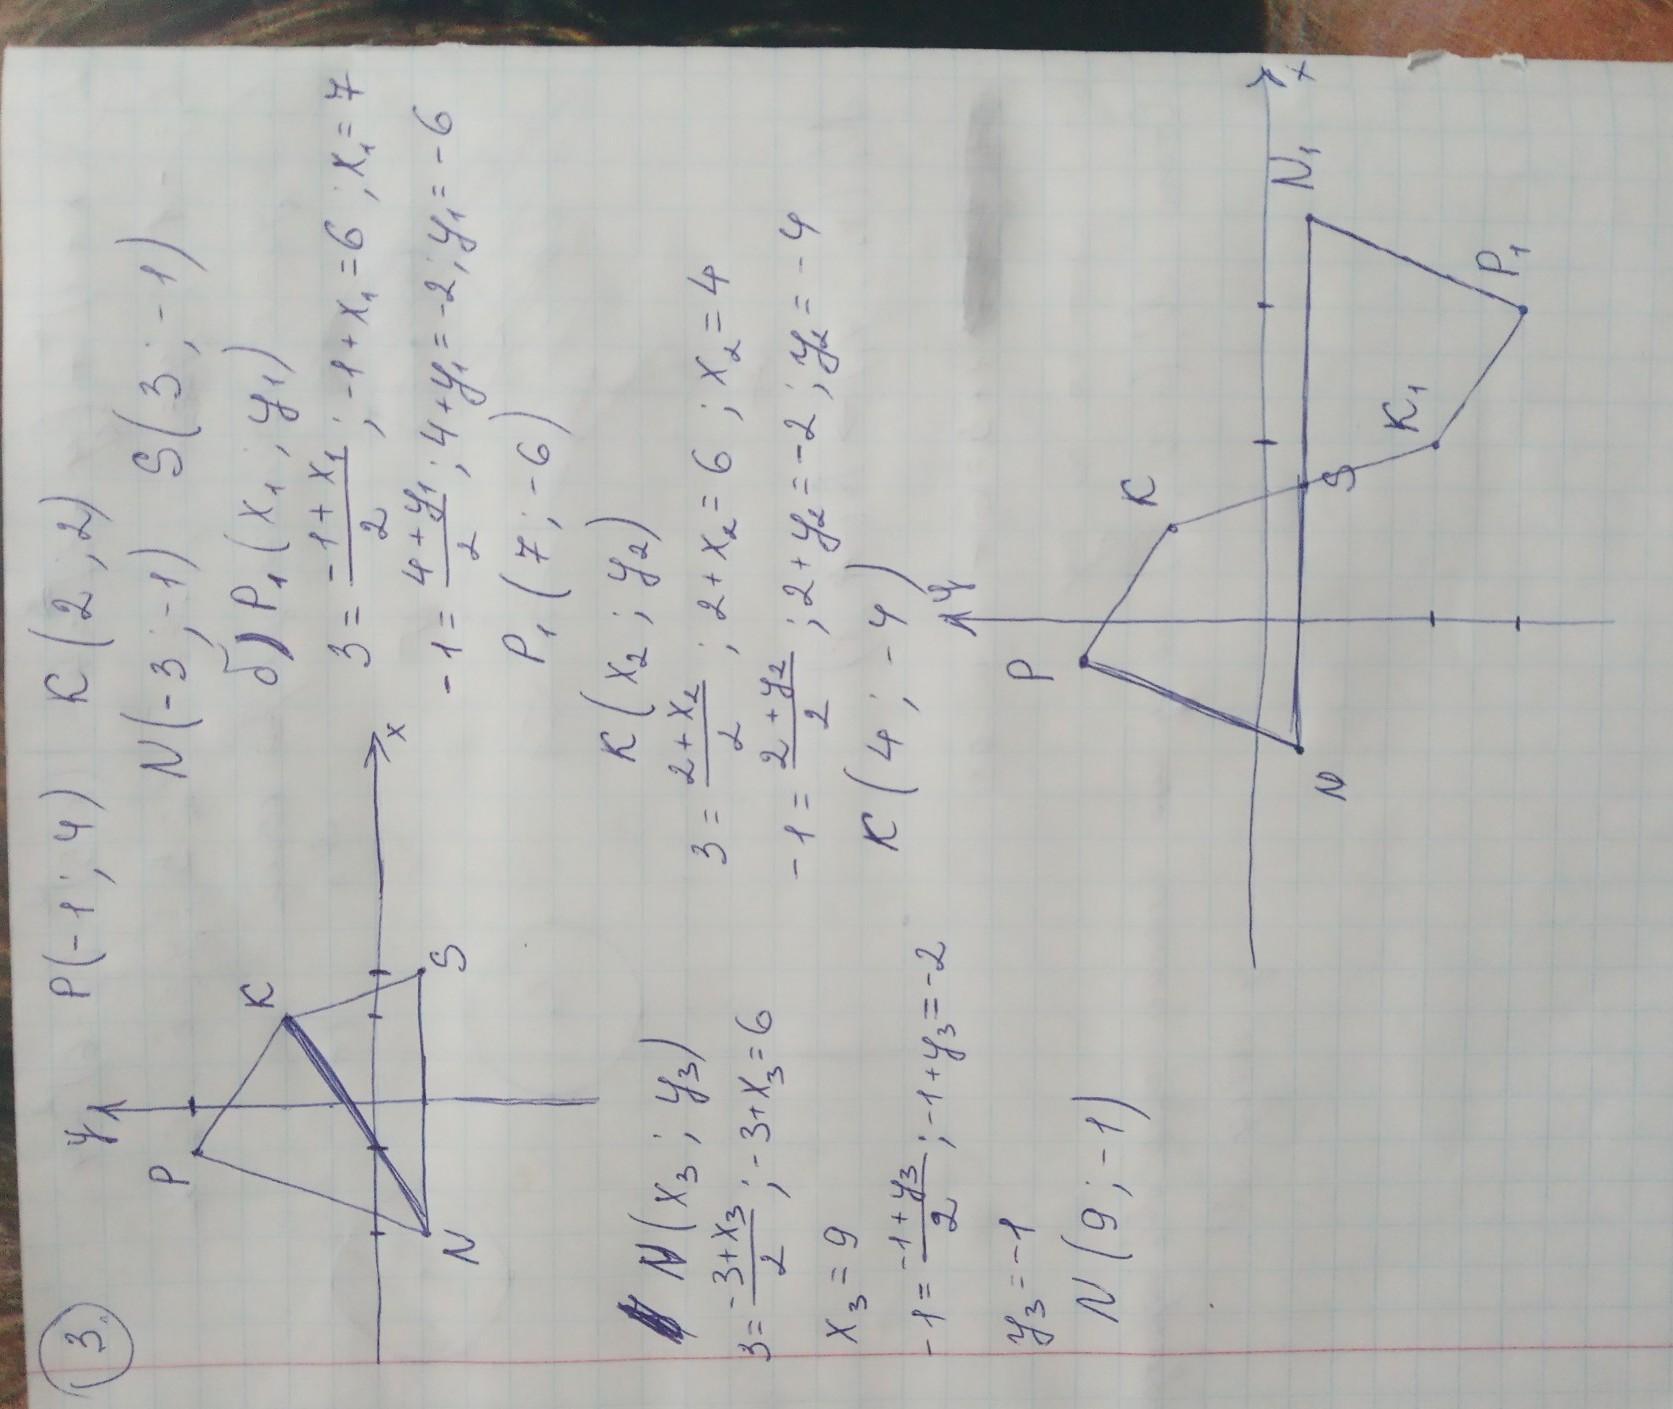 3.
P(-1; 4) K(2; 2)
N(-3; -1) S(3; -1)
y
P
K
x
N
S
б) P₁(x₁; y₁)
3 = (-1 + x₁)/2; -1 + x₁ = 6; x₁ = 7
-1 = (4 + y₁)/2; 4 + y₁ = -2; y₁ = -6
P₁(7; -6)
K(x₂; y₂)
3 = (2 + x₂)/2; 2 + x₂ = 6; x₂ = 4
-1 = (2 + y₂)/2; 2 + y₂ = -2; y₂ = -4
K(4; -4)
N(x₃; y₃)
3 = (-3 + x₃)/2; -3 + x₃ = 6
x₃ = 9
-1 = (-1 + y₃)/2; -1 + y₃ = -2
y₃ = -1
N(9; -1)
y
P
K
x
N
S
N₁
K₁
P₁